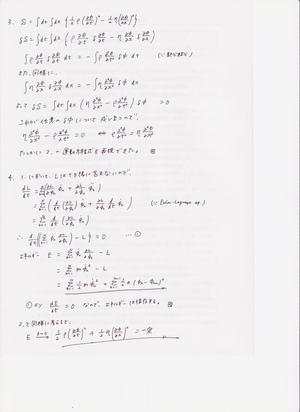 3. S = ∫dt∫dx {½ρ(∂φ/∂t)² - ½η(∂φ/∂x)²}
δS = ∫dt∫dx (ρ ∂φ/∂t δ ∂φ/∂t - η ∂φ/∂x δ ∂φ/∂x)
∫ρ ∂φ/∂t δ ∂φ/∂t dt = -∫ρ ∂²φ/∂t² δφ dt (∵部分積分)
また、同様に、
∫η ∂φ/∂x δ ∂φ/∂x dx = -∫η ∂²φ/∂x² δφ dx
よって δS = ∫dt∫dx (η ∂²φ/∂x² - ρ ∂²φ/∂t²) δφ = 0
これが任意の δφ について成り立つので、
η ∂²φ/∂x² - ρ ∂²φ/∂t² = 0 ⇔ ρ ∂²φ/∂t² = η ∂²φ/∂x²
たしかに2.の運動方程式を再現できた。
4. 1.において、Lはtを陽に含まないので
dL/dt = Σ(∂L/∂qₙ q̇ₙ + ∂L/∂q̇ₙ q̈ₙ)
= Σ(d/dt(∂L/∂q̇ₙ) q̇ₙ + ∂L/∂q̇ₙ q̈ₙ) (∵ Euler-Lagrange eq.)
= Σ d/dt (∂L/∂q̇ₙ q̇ₙ)
∴ d/dt {Σ q̇ₙ ∂L/∂q̇ₙ - L} = 0 … ①
エネルギー E = Σ ∂L/∂q̇ₙ q̇ₙ - L
= Σ m q̇ₙ² - L
①より dE/dt = 0 なので、エネルギーは保存する。
2.と同様に考えると、